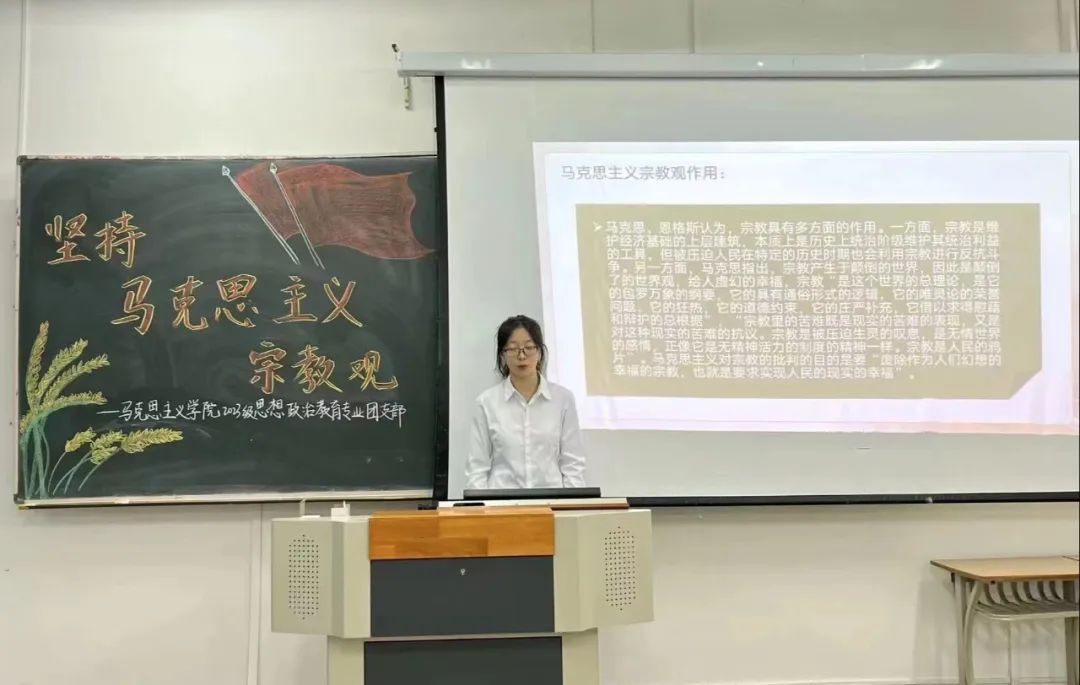 坚持
马克思主义
宗教观
—马克思主义学院2023级思想政治教育专业团支部
马克思主义宗教观作用：
➤马克思、恩格斯认为，宗教具有多方面的作用。一方面，宗教是维
护经济基础的上层建筑，本质上是历史上统治阶级维护其统治利益
的工具，但被压迫人民在特定的历史时期也会利用宗教进行反抗斗
争。另一方面，马克思指出，宗教产生于颠倒的世界，因此是颠倒
了的世界观，给人虚幻的幸福，宗教“是这个世界的总理论，是它
的包罗万象的纲要，它的具有通俗形式的逻辑，它的唯灵论的荣誉
问题，它的狂热，它的道德约束，它的庄严补充，它借以求得慰藉
和辩护的总根据”，“宗教里的苦难既是现实的苦难的表现，又是
对这种现实的苦难的抗议。宗教是被压迫生灵的叹息，是无情世界
的感情，正像它是无精神活力的制度的精神一样。宗教是人民的鸦
片”。马克思主义对宗教的批判目的是要“废除作为人们幻想的
幸福的宗教，也就是要求实现人民的现实的幸福”。